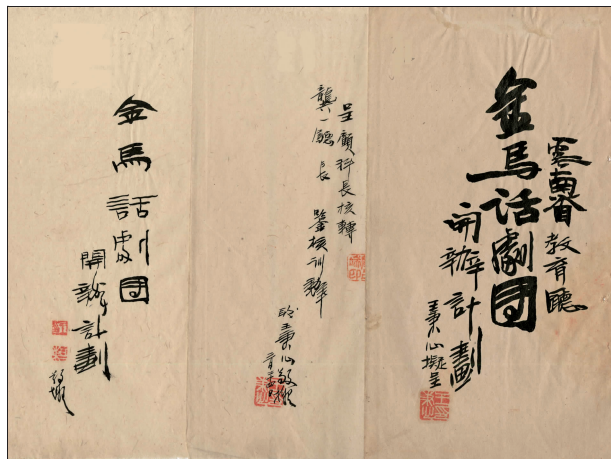 雲南省教育廳
金馬话劇团
開辦计劃
王秉心擬呈
呈顧科長核轉
龔廳長 鑒核训辦
職秉心敬擬
金馬話劇団
開辦計劃